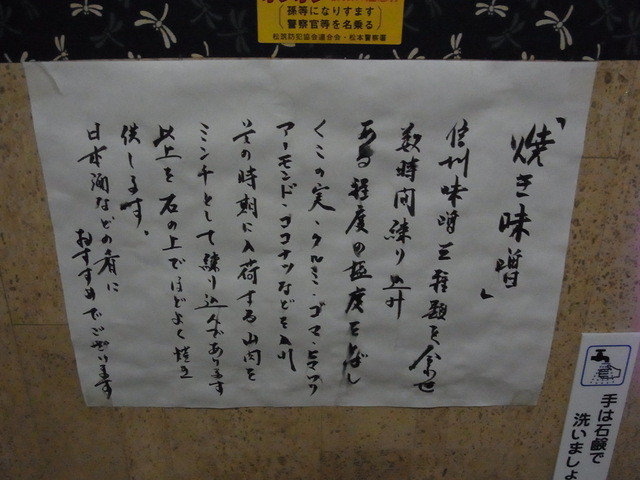 孫等になりすます
警察官等を名乗る
松筑防犯協会連合会・松本警察署
「焼き味噌」
信州味噌三種類を合せ
数時間練り込み
ある程度の塩度をとばし
くこの実、クルミ・ゴマ・ヒマワリ
アーモンド・ココナツなどを入れ
その時刻に入荷する山肉を
ミンチとして練り込んであります
以上を石の上でほどよく焼き
供します。
日本酒などの肴に
おすすめでございます
手は石鹸で
洗いましょ